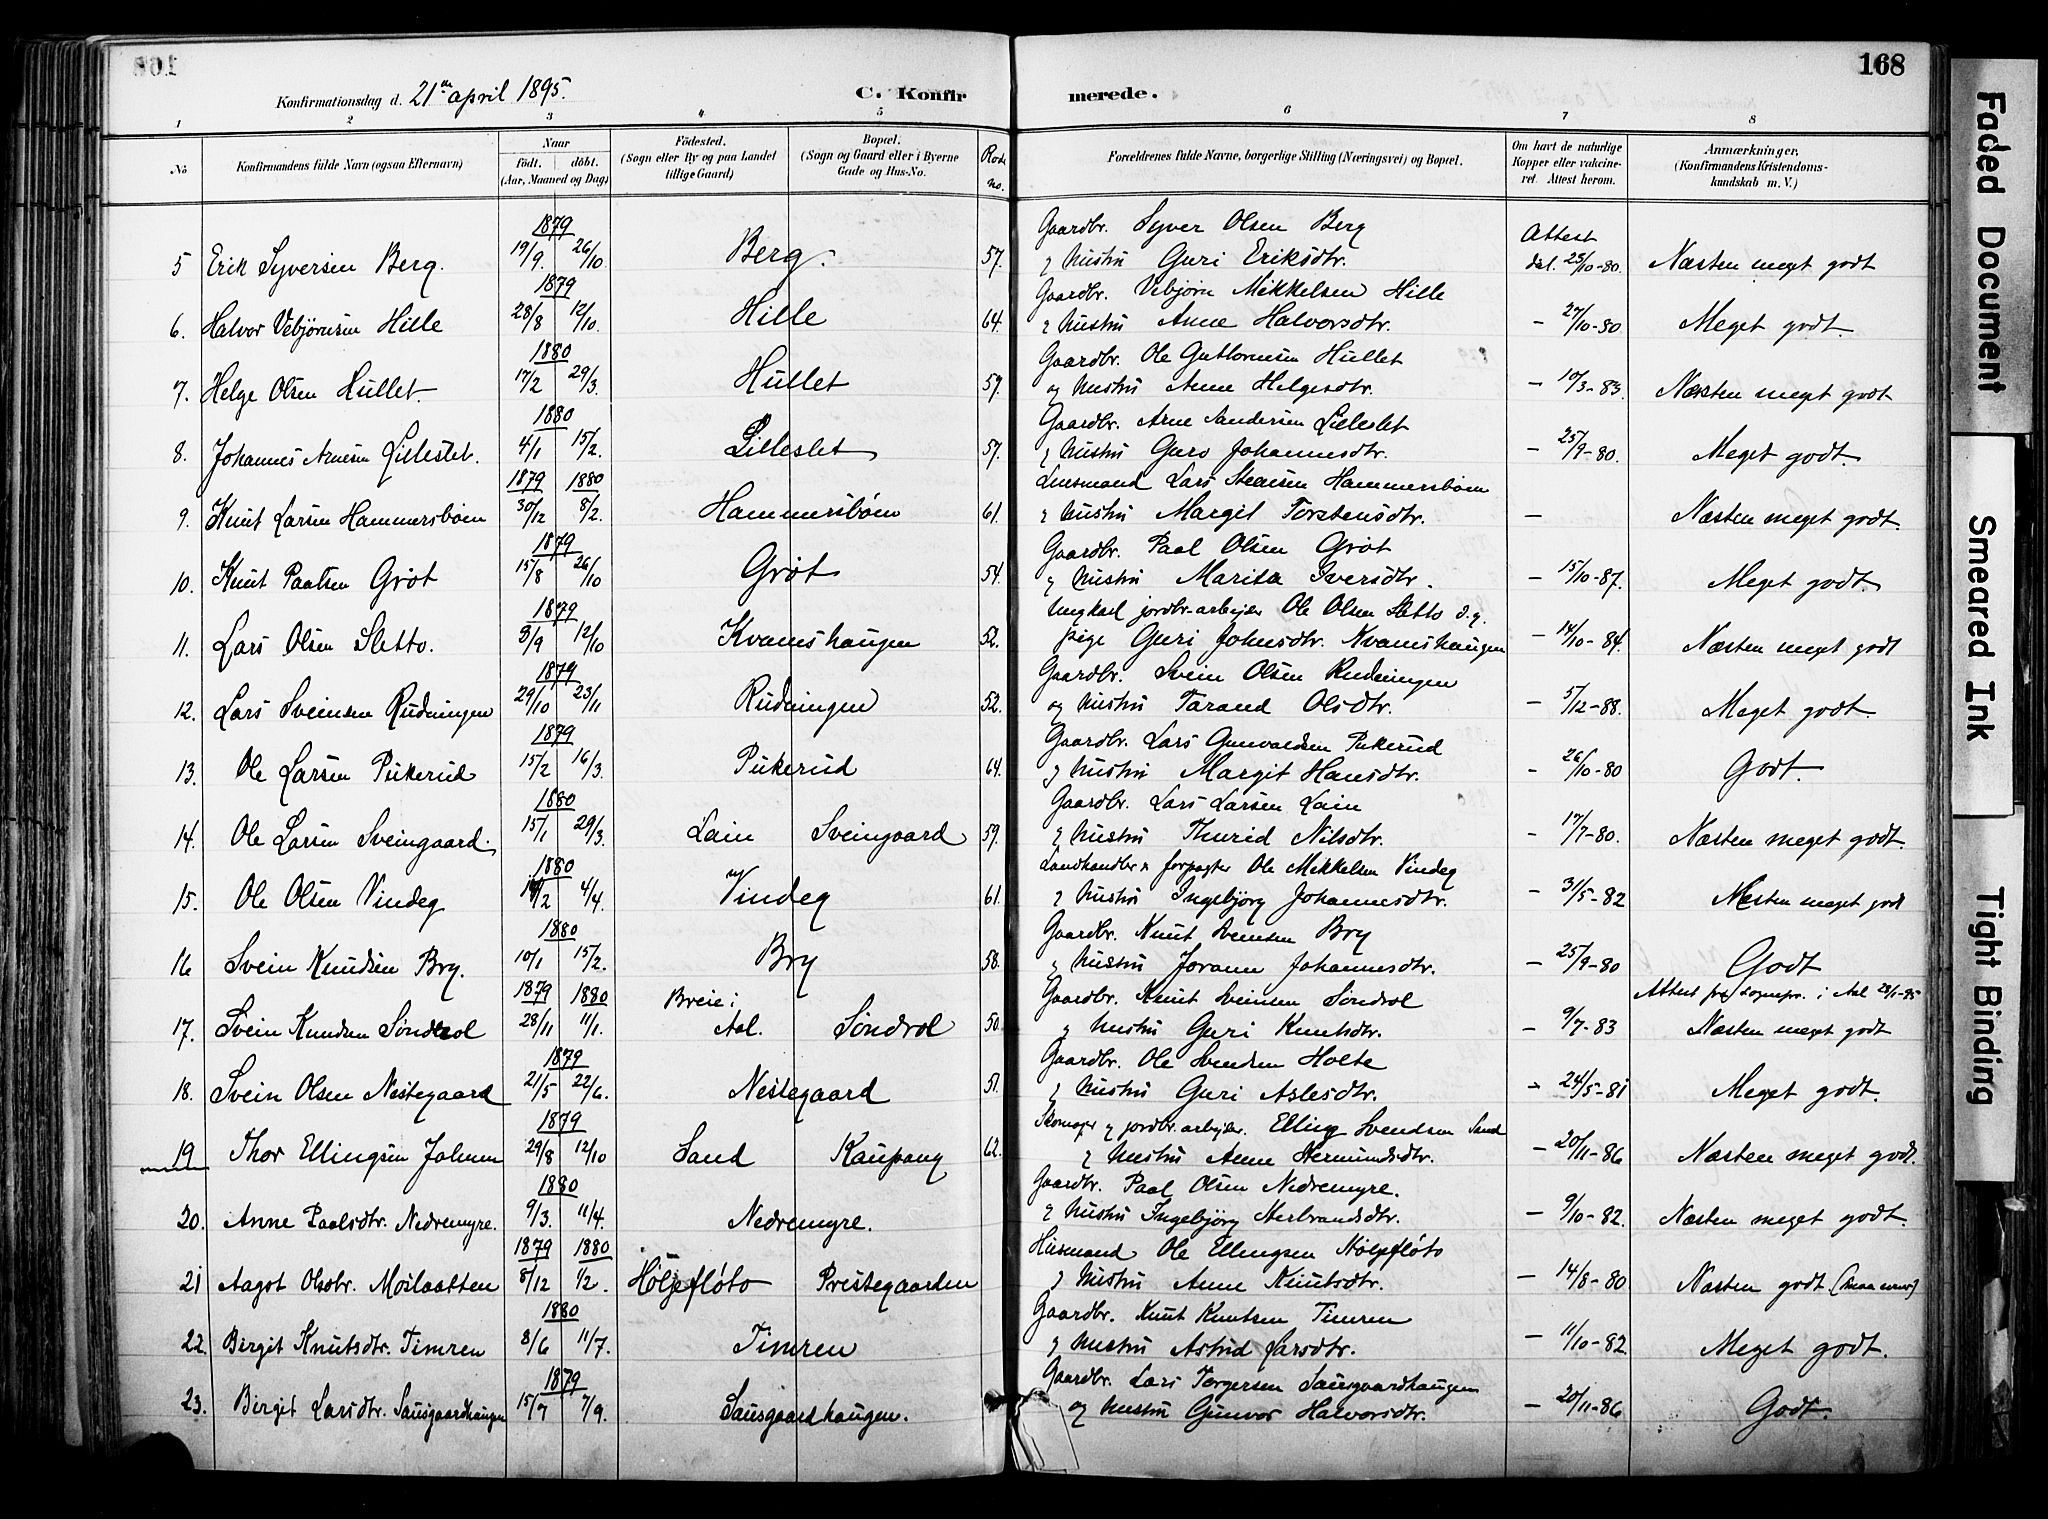 168
Konfirmationsdag d. 21de april 1895.
C. Konfirmerede.
1 2 3 4 5 6 7 8
No Konfirmandens fulde Navn (ogsaa Efternavn) Naar født. døbt. (Aar, Maaned og Dag) Födested. (Sogn eller By og paa Landet tillige Gaard) Bopæl. (Sogn og Gaard eller i Byerne Gade og Hus-No. Rode no. Forældrenes fulde Navne, borgerlige Stilling (Næringsvei) og Bopæl. Om havt de naturlige Kopper eller vakcineret. Attest herom. Anmærkninger. (Konfirmandens Kristendomskundskab m. V.)
1879 Gaardbr. Syver Olsen Berg Attest
5 Erik Syversen Berg. 19/9. 26/10 Berg. 57. og hustru Guri Eriksdtr. dat. 25/10-80. Næsten meget godt
1879 Gaardbr. Vebjørn Mikkelsen Hille
6. Halvor Vebjørnsen Hille 28/8 12/10. Hille 64. og hustru Anne Halvorsdtr. – 27/10-80 Meget godt.
1880 Gaardbr. Ole Guttormsen Hullet
7. Helge Olsen Hullet. 17/2 29/3. Hullet 59. og hustru Anne Helgesdtr. – 10/3-83. Næsten meget godt
1880 Gaardbr. Arne Andersen Lilleslet
8. Johannes Arnesen Lilleslet. 4/1 15/2. Lilleslet 57. og hustru Guro Johannesdtr. – 25/9-80. Meget godt.
1879 1880 Lensmand Lars Hammersbøen
9. Knut Larsen Hammersbøen 30/12 8/2. Hammersbøen 61. og hustru Margit Torstensdtr. – Næsten meget godt.
1879 Gaardbr. Paal Olsen Grøt
10. Knut Paalsen Grøt 15/8 26/10 Grøt 54. og hustru Marita Iversdtr. – 15/10-87. Meget godt.
1879 Ungkarl jordbr.arbejder Ole Olsen Sletto o.g.
11. Lars Olsen Sletto. 3/9 12/10 Kvamshaugen 52. pige Guri Johnsdtr. Kvamshaugen – 14/10-84. Næsten meget godt
1879 Gaardbr. Svein Olsen Rudningen
12. Lars Sveinsen Rudningen 29/10 23/11 Rudningen 52. og hustru Tarand Olsdtr. – 5/12-88. Meget godt.
1879 Gaardbr. Lars Gunvaldsen Pukerud
13. Ole Larsen Pukerud 15/2 16/3. Pukerud 64. og hustru Margit Hansdtr. – 26/10-80 Godt.
1880 Gaardbr. Lars Larsen Lain
14. Ole Larsen Sveingaard. 15/1 29/3. Lain Sveingaard 59. og hustru Thurid Nilsdtr. – 17/7-80. Næsten meget godt.
1880 Landhandler & forpagter Ole Mikkelsen Vindeg
15. Ole Olsen Vindeg 4/4. Vindeg 61. og hustru Ingebjørg Johannesdtr. – 31/5-82 Næsten meget godt
1880 Gaardbr. Knut Svensen Bry
16 Svein Knudsen Bry. 10/1 15/2. Bry 58. og hustru Jorann Johannesdtr. – 25/9-80 Godt
1879 1880 Breie i Gaardbr. Knut Sveinsen Søndrol Attest fra sognepr. i Aal 28/1-95
17. Svein Knudsen Søndrol 28/11 11/1. Aal. Søndrol 50. og hustru Guri Knutsdtr. – 9/7-83 Næsten meget godt
1879 Gaardbr. Ole Svendsen Holte
18. Svein Olsen Nestegaard 21/5 22/6. Nestegaard 51. og hustru Guri Aslesdtr. – 24/5-81 Meget godt.
1879 Skomager og jordbr.arbejder. Elling Svendsen Sand
19 Thor Ellingsen 29/8 12/10 Sand Kaupang 62. og hustru Anne Hermundsdtr. – 20/11-86 Næsten meget godt.
1880 Gaardbr. Paal Olsen Nedremyre.
20. Anne Paalsdtr. Nedremyre. 9/3. 11/4. Nedremyre. og hustru Ingebjörg Herbrandsdtr. – 9/10-82. Næsten meget godt.
1879 1880 Husmand Ole Ellingsen Hölpeflöto
21 Aagot Olsdtr. Moslaatten 8/12 1/2. Höljeflöto Prestegaarden og hustru Anne Knutsdtr. – 14/8-80 Næsten godt
1880 Gaardbr. Knut Knutsen Timren
22. Birgit Knutsdtr. Timren 8/6 11/7. Timren og hustru Astrid Larsdtr. – 11/10-82. Meget godt.
1879 Gaardbr. Lars Torgersen Sausgaardhaugen
23. Birgit Larsdtr. Sausgaardhaugen 15/7 7/9. Sausgaardhaugen. og hustru Gunvor Halvorsdtr. – 20/11-86 Godt.
Faded Document
Smeared Ink
Tight Binding